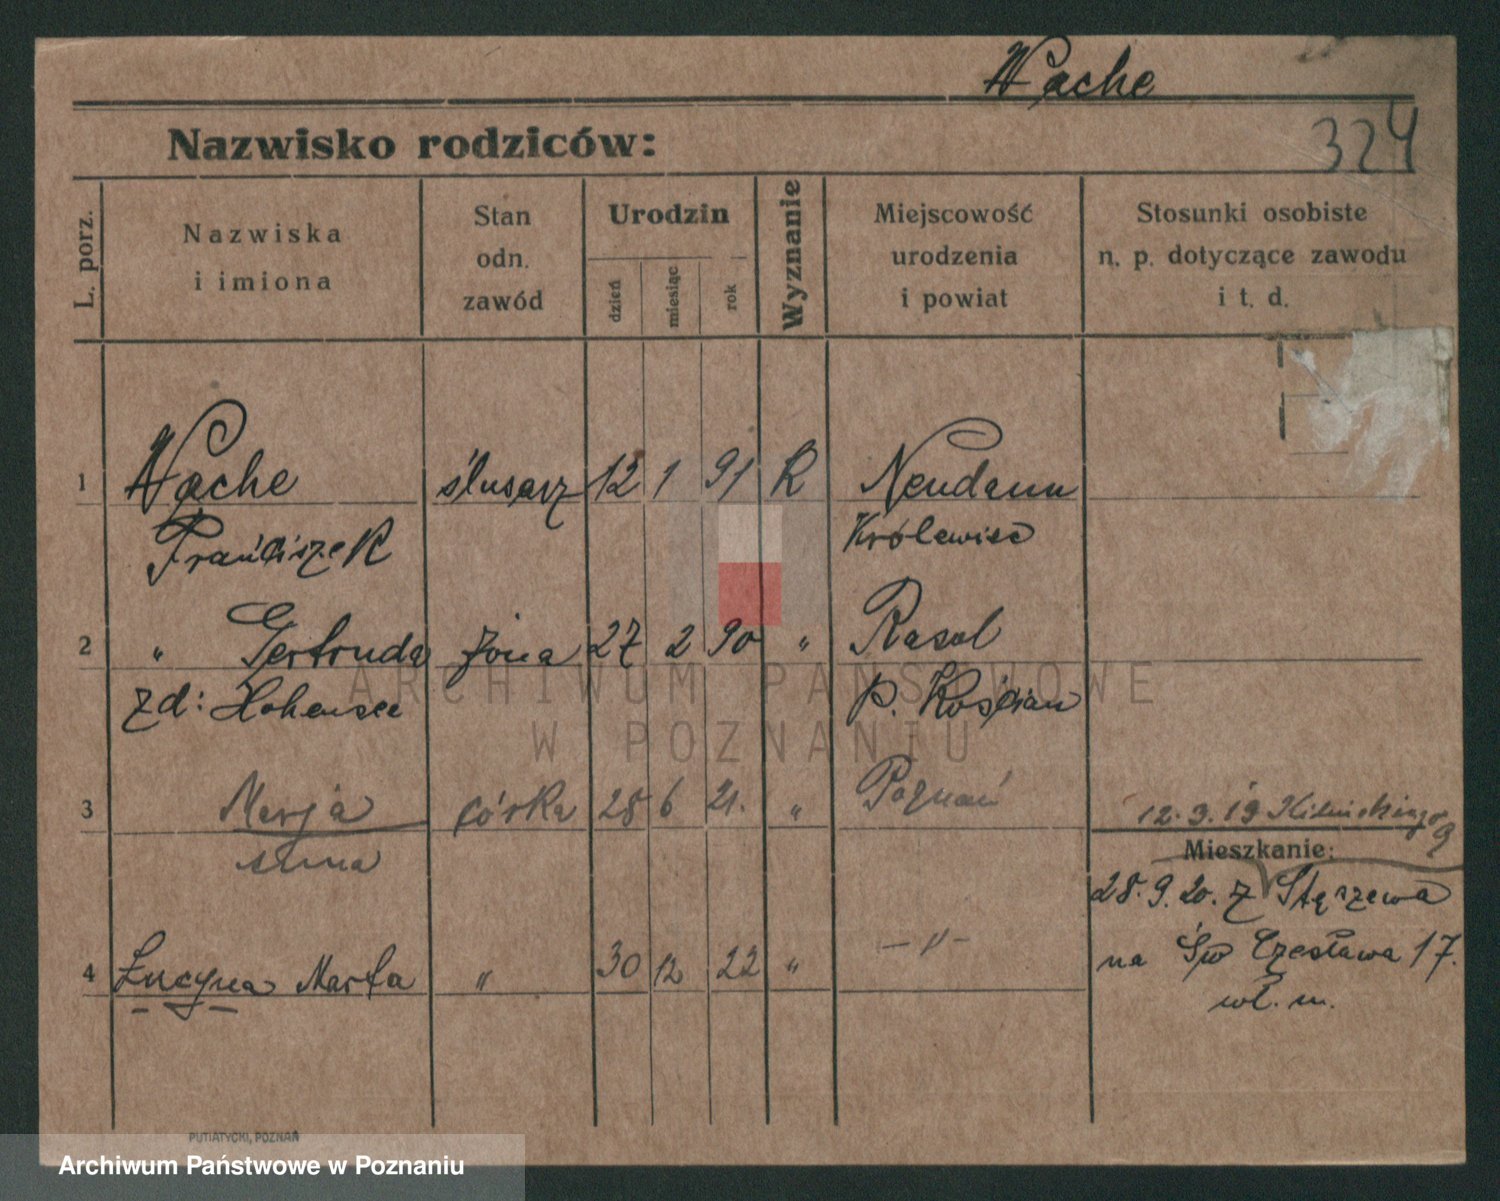 Wache
Nazwisko rodziców:
324
L. porz.
Nazwiska
i imiona
Stan
odn.
zawód
Urodzin
dzień
miesiąc
rok
Wyznanie
Miejscowość
urodzenia
i powiat
Stosunki osobiste
n. p. dotyczące zawodu
i t. d.
1 Wache ślusarz 12 1 91 R Neudamm
Franciszek Królewisc
2 " Gertruda żona 27 2 90 " Rasol
zd: Hohensee p. Kościan
3 Marja córka 28 6 21. " Poznań
Anna
12.9.19
Mieszkanie:
28.9.20. z Stęszewa
4 Lucyna Marta " 30 12 22 " -"-
na Św Czesława 17.
wł. m.
ARCHIWUM PAŃSTWOWE
W POZNANIU
PUTIATYCKI, POZNAŃ
Archiwum Państwowe w Poznaniu